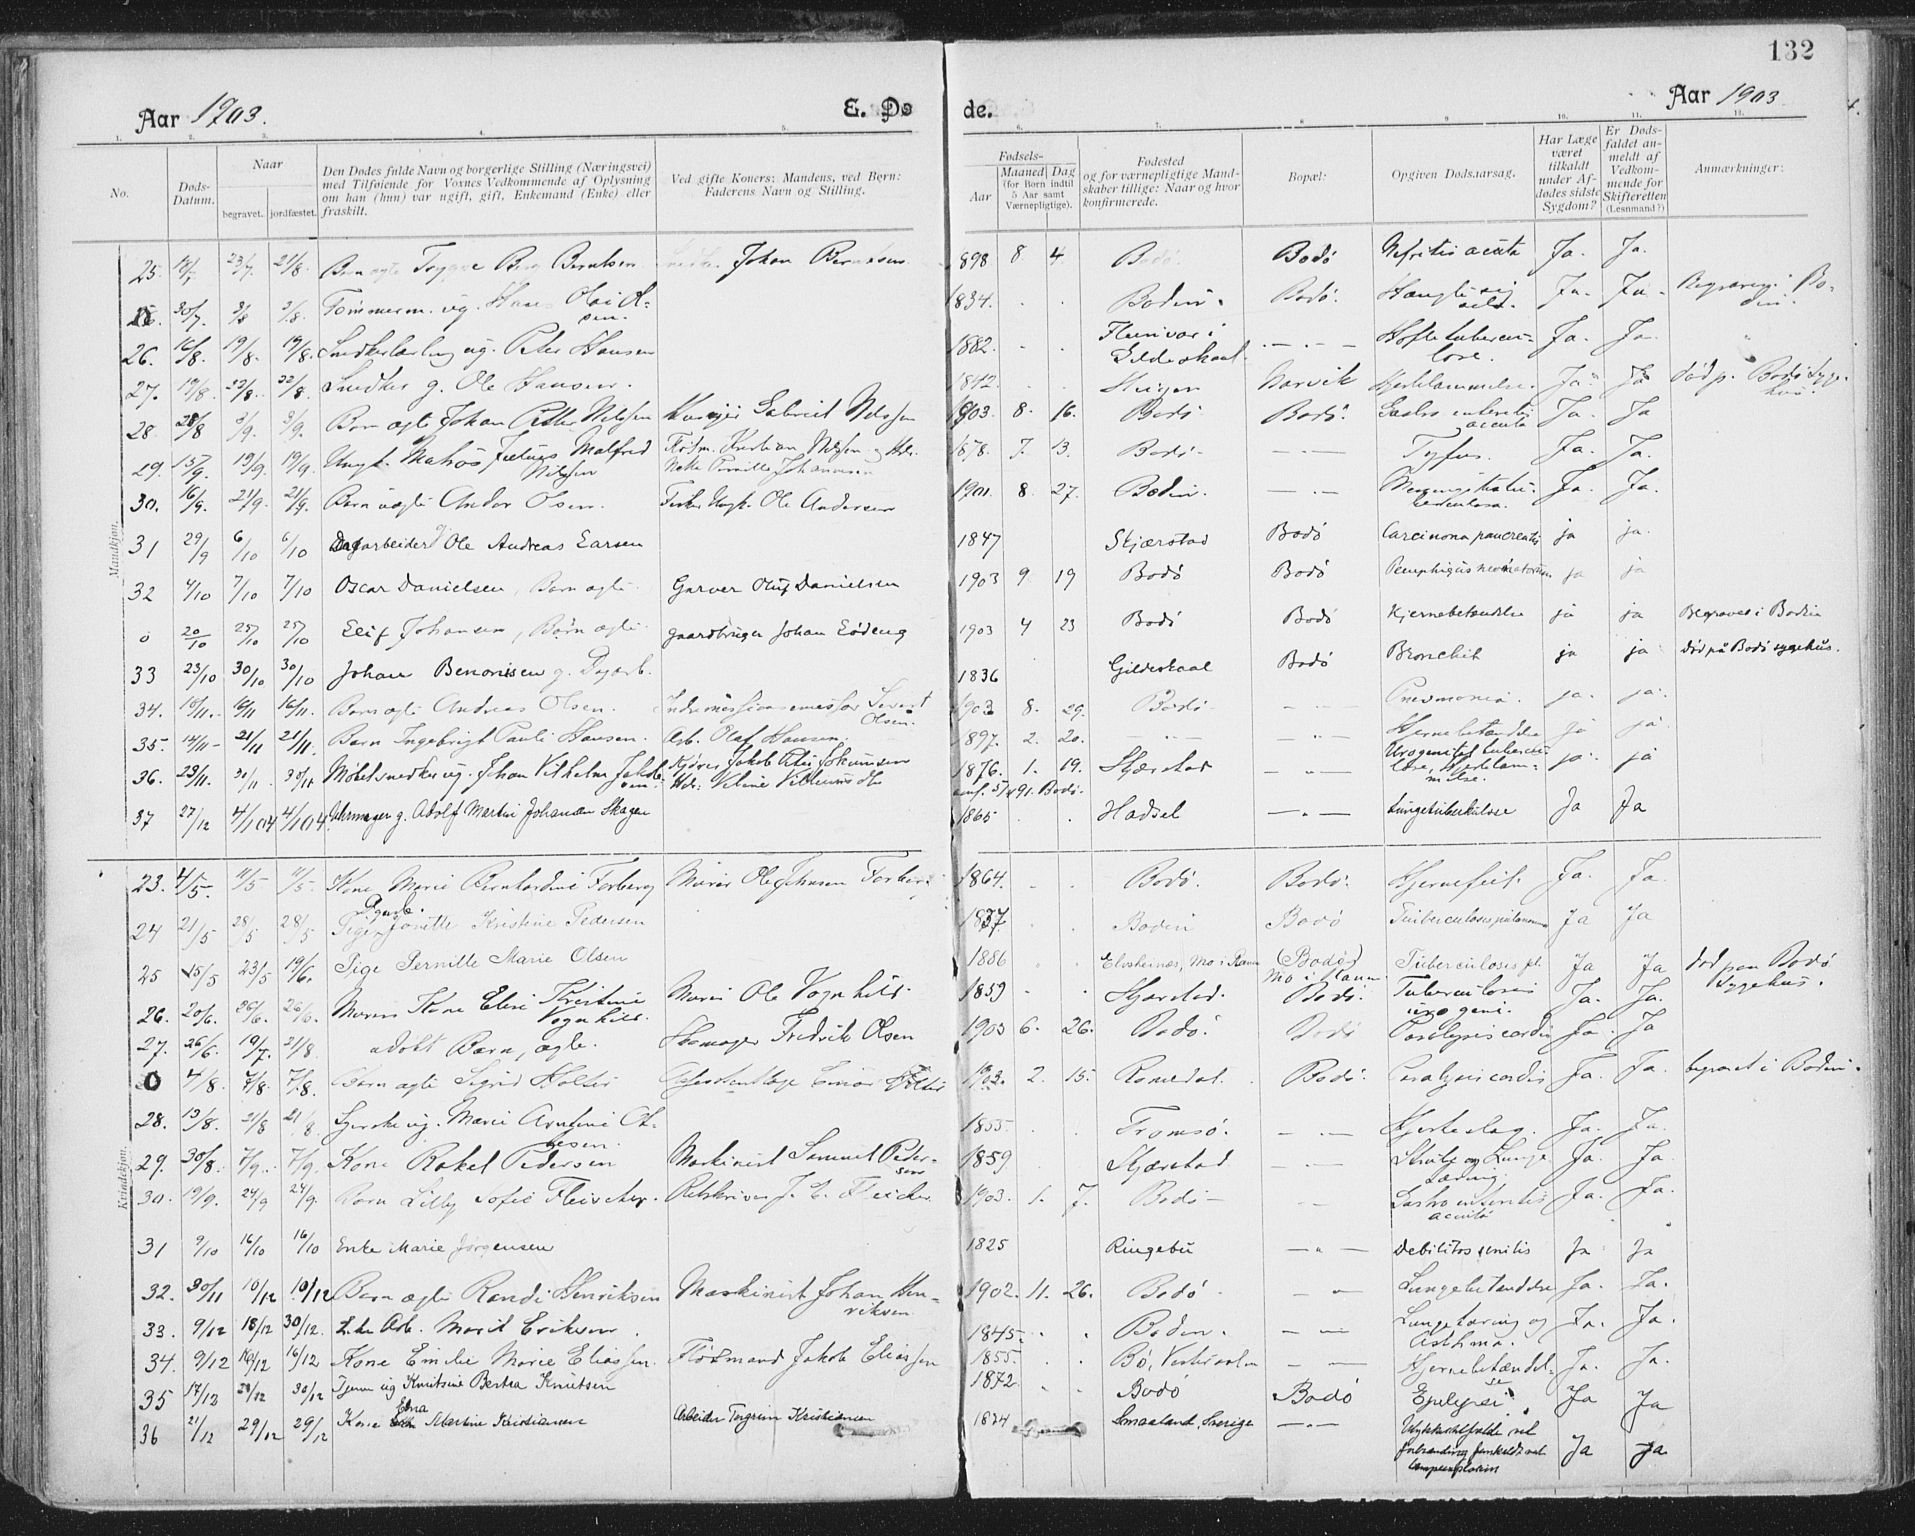 132
Aar 1903.
E. Dø
de.
Aar 1903.
1. 2. 3. 4. 5. 6. 7. 8. 9. 10. 11. 12.
No.
Døds-Datum.
Naar
begravet. jordfæstet.
Den Dødes fulde Navn og borgerlige Stilling (Næringsvei) med Tilføiende for Voxnes Vedkommende af Oplysning om han (hun) var ugift, gift, Enkemand (Enke) eller fraskilt.
Ved gifte Koner: Mandens, ved Børn: Faderens Navn og Stilling.
Fødsels-
Aar
Maaned Dag
(for Børn indtil 5 Aar samt Værnepligtige).
Fødested og for værnepligtige Mandskaber tillige: Naar og hvor konfirmerede.
Bopæl:
Opgiven Dødsaarsag.
Har Læge været tilkaldt under Afdødes sidste Sygdom?
Er Dødsfaldet anmeldt af Vedkommende for Skifteretten (Lesnmand?)
Anmærkninger:
Mandkjøn.
25. 23/7 21/8. Barn ægte Trygve Berg Berntsen Johan Berntsen 1898 8 4 Bodø. Bodø Nefritis acuta Ja. Ja.
30/7. 3/8 3/8. Tømmerm. ug. Hans Olai Olsen. 1834. Bodin. Bodø. Hængte sig selv. Ja. Ja. Begraven i Bodin.
26. 16/8. 19/8. 19/8. Snedkerlærling ug. Peter Hansen 1882. Fleinvær i Gildeskaal. Hoftetuberculose. Ja. Ja.
27. 19/8. 22/8. 22/8. Snedker g. Ole Hansen. 1842. Steigen Narvik Hjertelammelse. Ja Ja død p. Bodø Sygehus.
28. 28/8 3/9. 3/9. Barn ægte Johan Petter Nilssen Gabriel Nilssen 1903. 8. 16. Bodø. Bodø. Gastro enteritis accuta Ja. Ja
29. 15/9. 19/9. 19/9. Ungk. Malfred Nilssen Kristian Nilssen Pernille Johannessen 1878. 7. 13. Bodø. Tyfus. Ja. Ja.
30. 16/9. 21/9. 21/9. Barn uægte Andor Olsen. Fisker Ungk. Ole Andersen 1901. 8. 27. Bodin. Ja. Ja.
31 29/9 6/10 6/10 Dagarbeider Ole Andreas Larsen 1847 Skjærstad Bodø Carcinoma pancreatis ja ja.
32 4/10 7/10 7/10 Oscar Danielsen, Barn ægte. Garver Oluf Danielsen 1903 9 19 Bodø Bodø Pemphigus neonatorum ja ja
0 20/10 25/10 25/10 Elif Johansen, Barn ægte. gaardbruger Johan Løding 1903 4 23 Bodø Bodø Hjernebetændelse ja ja Begravet i Bodin
33 23/10 30/10 30/10 Johan Benonisen g. Dagarb. 1836 Gildeskaal Bodø Bronchit ja ja død på Bodø sygehus.
34. 10/11. 16/11 16/11. Barn ægte Andreas Olsen. Indremissionsemissær Severt Olsen. 1903 8. 29. Bodø Pneumonia. ja. ja.
35. 14/11 21/11 21/11. Barn Ingebrigt Pauli Hansen. Arb. Olaf Hansen. 1897. 2. 20. Hjernebetændelse ja ja.
36. 23/11. 30/11. 30/11 Møbelsnedker ug. Johan Vilhelm Jakobsen. Jakob Johansen 1876. 1. 19. Skjærstad Urogenital tuberculose, Hjertelammelse. ja. ja
conf. 91. Bodø.
37 27/12 4/1 04 4/1 04. Uhrmager g. Adolf Martin Johansen Skagen 1865 Hadsel Lungetuberkulose Ja Ja
Kvindekjøn.
23. 4/5. 11/5 11/5. Kone Marie Bernhardine Forberg Murer Ole Johnsen Forberg 1864. Bodø. Bodø. Hjernefeil. Ja. Ja.
24 21/5 28/5 28/5 Pige Jonette Kristine Pedersen 1837 Bodin Bodø Tuberculosis pulmonum Ja Ja
25 15/5 23/5 19/6. Pige Pernille Marie Olsen 1886 Mo i Ranen (Bodø) Mo i Ranen Tuberculosis pl. Ja Ja død paa Bodø Sygehus.
26. 20/6. 26/6. 26/6. Murers Kone Elise Kristine Vognhild. Murer Ole Vognhild. 1859 Skjærstad. Bodø. Tuberculosis urogeni. Ja. Ja.
27. 26/6. 19/7. 21/8. udøbt Barn, ægte. Skomager Fredrik Olsen 1903 6. 26. Bodø. Bodø Paralysis cordis Ja. Ja
0 4/8. 7/8. 7/8. Barn ægte Sigrid Holter Einar Holter 1903. 2. 15. Romedal. Bodø. Paralysis cordis Ja. Ja. begravet i Bodin.
28. 19/8. 21/8 21/8. ug. Marie 1855 Tromsø. Hjerteslag. Ja. Ja.
29. 30/8. 7/9. 7/9. Kone Rakel Pedersen Maskinist Samuel Pedersen 1859 Skjærstad Strube og Lungetæring. Ja. Ja.
30. 19/9. 24/9 24/9. Barn Lilly Sofie Fleischer. Retskriver J. Fleischer 1903. 1. 7. Bodø Gastro enteritis acuta Ja. Ja.
31 9/10 16/10 16/10 Enke Marie Jørgensen 1825 Ringebu Debilitas senilis Ja Ja
32. 30/11 10/12 10/12 Barn ægte Randi Henriksen Maskinist Johan Henriksen 1902. 11. 26. Bodø Lungebetændelse Ja. Ja.
33. 9/12 18/12 30/12. Marit Eriksen. 1845. Bodin. Lungetæring og Asthma. Ja. Ja.
34. 9/12 16/12 16/12 Kone Emilie Marie Eliassen. Flødmand Jakob Eliassen 1855. Bø, Vesteraalen Hjernebetændelse Ja. Ja.
35 17/12 30/12 Tjener ug Knutsine Berta Knutsen 1872. Bodø Bodø Epilepsi. Ja Ja
36 21/12 29/12 29/12 Kone Edna Martine Kristiansen Arbeider Torgrim Kristiansen 1874 Smaaland, Sverige Ulykkestilfælde ved forbrænding ved lampeexplosion Ja Ja